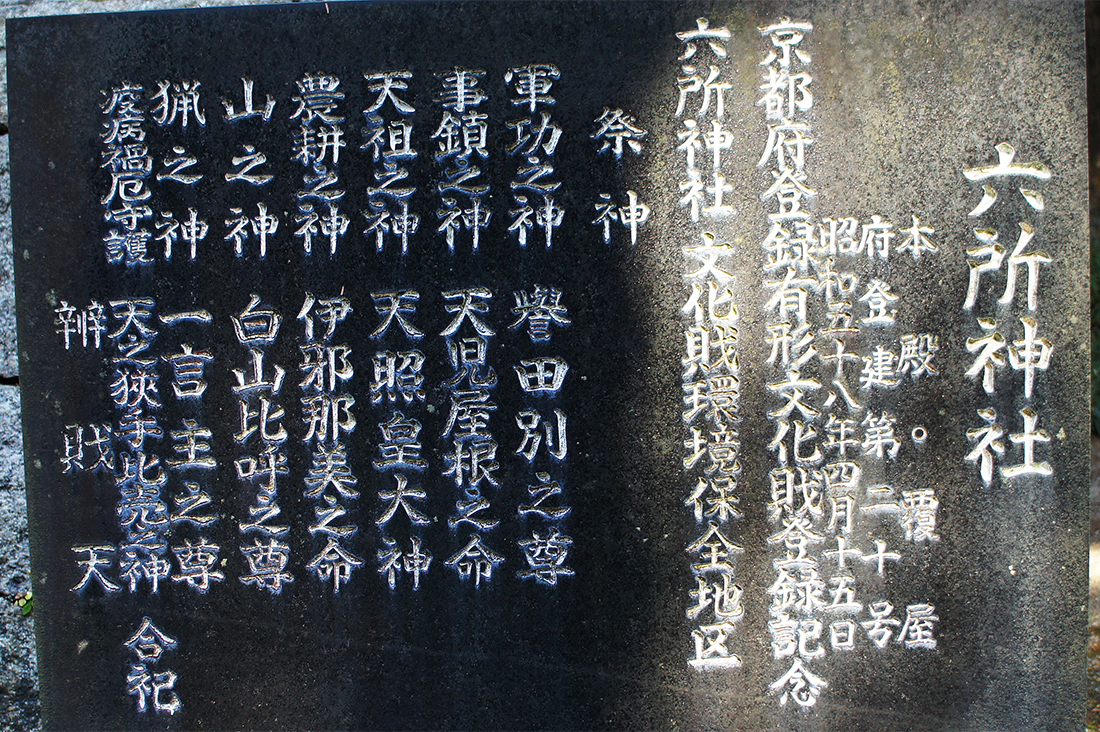 六所神社
本殿。覆屋
府登建第二十号
昭和五十八年四月十五日
京都府登録有形文化財登録記念
六所神社 文化財環境保全地区
祭神
軍功之神 譽田別之尊
事鎮之神 天児屋根之命
天祖之神 天照皇大神
農耕之神 伊邪那美之命
山之神 白山比呼之尊
猟之神 一言主之尊
疫病禍厄守護 天之狭手比売之神 合祀
辨財天